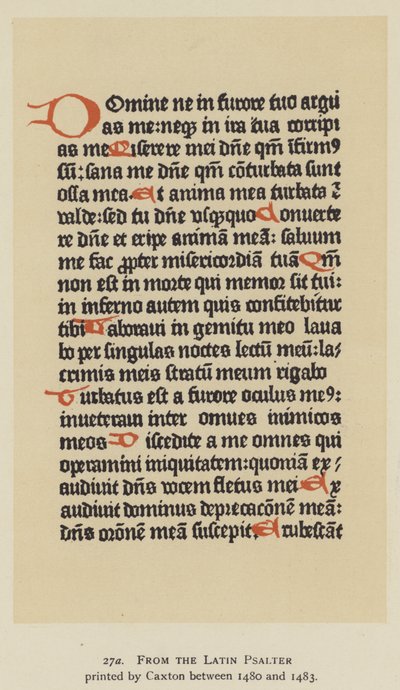 Domine ne in furore tuo argu
as me:neqz in ira tua corripi
as me Miserere mei dñe qm̄ īfirm9
sū:sana me dñe qm̄ cōturbata sunt
ossa mea. Et anima mea turbata ē
valde:sed tu dñe vsqzquo Conuerte
re dñe et eripe animā meā: saluum
me fac ꝓpter misericordiā tuā Qm̄
non est in morte qui memor sit tui:
in inferno autem quis confitebitur
tibi Laboraui in gemitu meo laua
bo per singulas noctes lectū meū:la⸗
crimis meis stratū meum rigabo
Turbatus est a furore oculus me9:
inueteraui inter omues inimicos
meos Discedite a me omnes qui
operamini iniquitatem:quoniā ex⸗
audiuit dñs vocem fletus mei Ex
audiuit dominus deprecacōnē meā:
dñs orōnē meā suscepit. Erubescāt
27a. FROM THE LATIN PSALTER
printed by Caxton between 1480 and 1483.